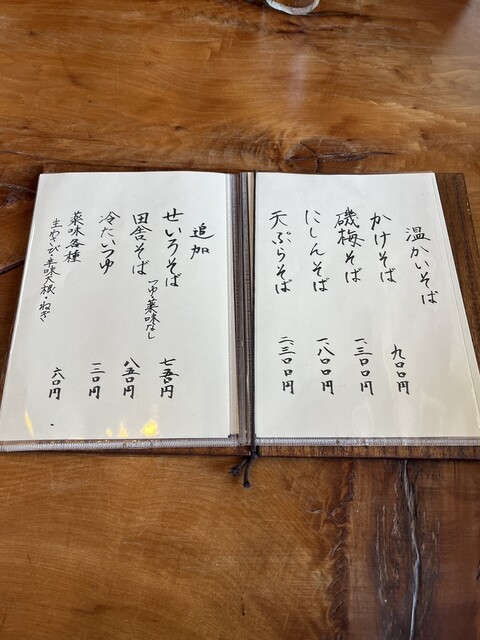 温かいそば
かけそば 九〇〇円
磯梅そば 一、三〇〇円
にしんそば 一、八〇〇円
天ぷらそば 二、三〇〇円
追加
せいろそば 七五〇円
つゆ・薬味なし
田舎そば 八五〇円
冷たいつゆ 一二〇円
薬味各種 六〇円
生わさび・辛味大根・ねぎ